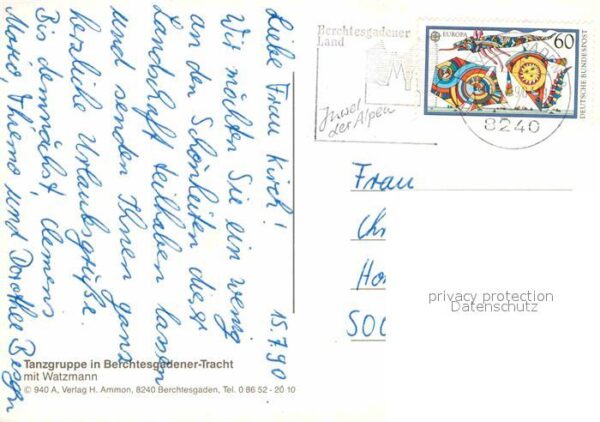 15.7.90
Liebe Frau Kirch!
Wir möchten Sie ein wenig
an den Schönheiten dieser
Landschaft teilhaben lassen
und senden Ihnen ganz
herzliche Urlaubsgrüße.
Bis demnächst, Clemens
Mario, Thiemo und Dorothee
Berchtesgadener
Land
Insel
der Alpen
EUROPA
60
DEUTSCHE BUNDESPOST
8240
Frau
privacy protection
Datenschutz
Tanzgruppe in Berchtesgadener-Tracht
mit Watzmann
© 940 A, Verlag H. Ammon, 8240 Berchtesgaden, Tel. 0 86 52 - 20 10